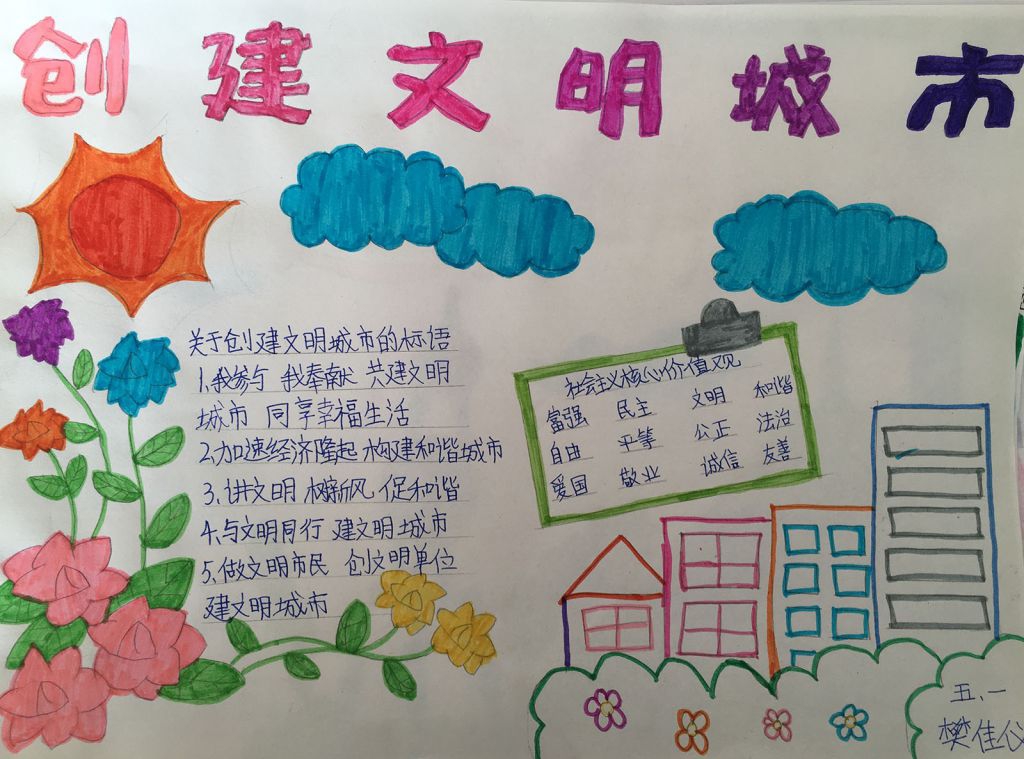 创建文明城市
关于创建文明城市的标语
1.我参与 我奉献 共建文明
城市 同享幸福生活
2.加速经济隆起 构建和谐城市
3.讲文明 树新风 促和谐
4.与文明同行 建文明城市
5.做文明市民 创文明单位
建文明城市
社会主义核心价值观
富强 民主 文明 和谐
自由 平等 公正 法治
爱国 敬业 诚信 友善
五、一
樊佳仪